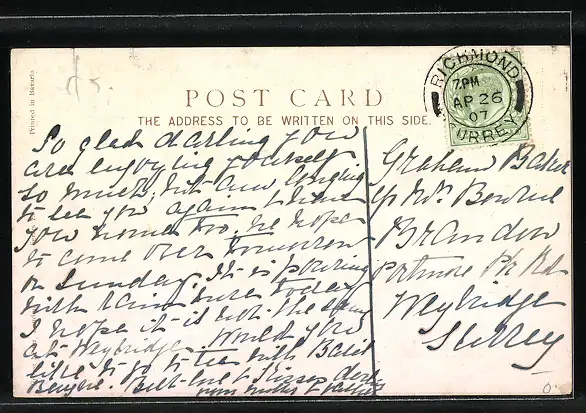 Printed in Bavaria
POST CARD
THE ADDRESS TO BE WRITTEN ON THIS SIDE.
RICHMOND
7.PM
AP 26
07
SURREY
So glad darling you
are enjoying yourself
so much, but am longing
to see you again & have
you home too. We hope
to come over tomorrow
or Sunday. It is pouring
with rain here today
I hope it is not the same
at Weybridge. Would you
like to go to tea with Basil
Best love & kisses
Graham
c/o Mrs
Brandon
Portmore Pk Rd
Weybridge
Surrey